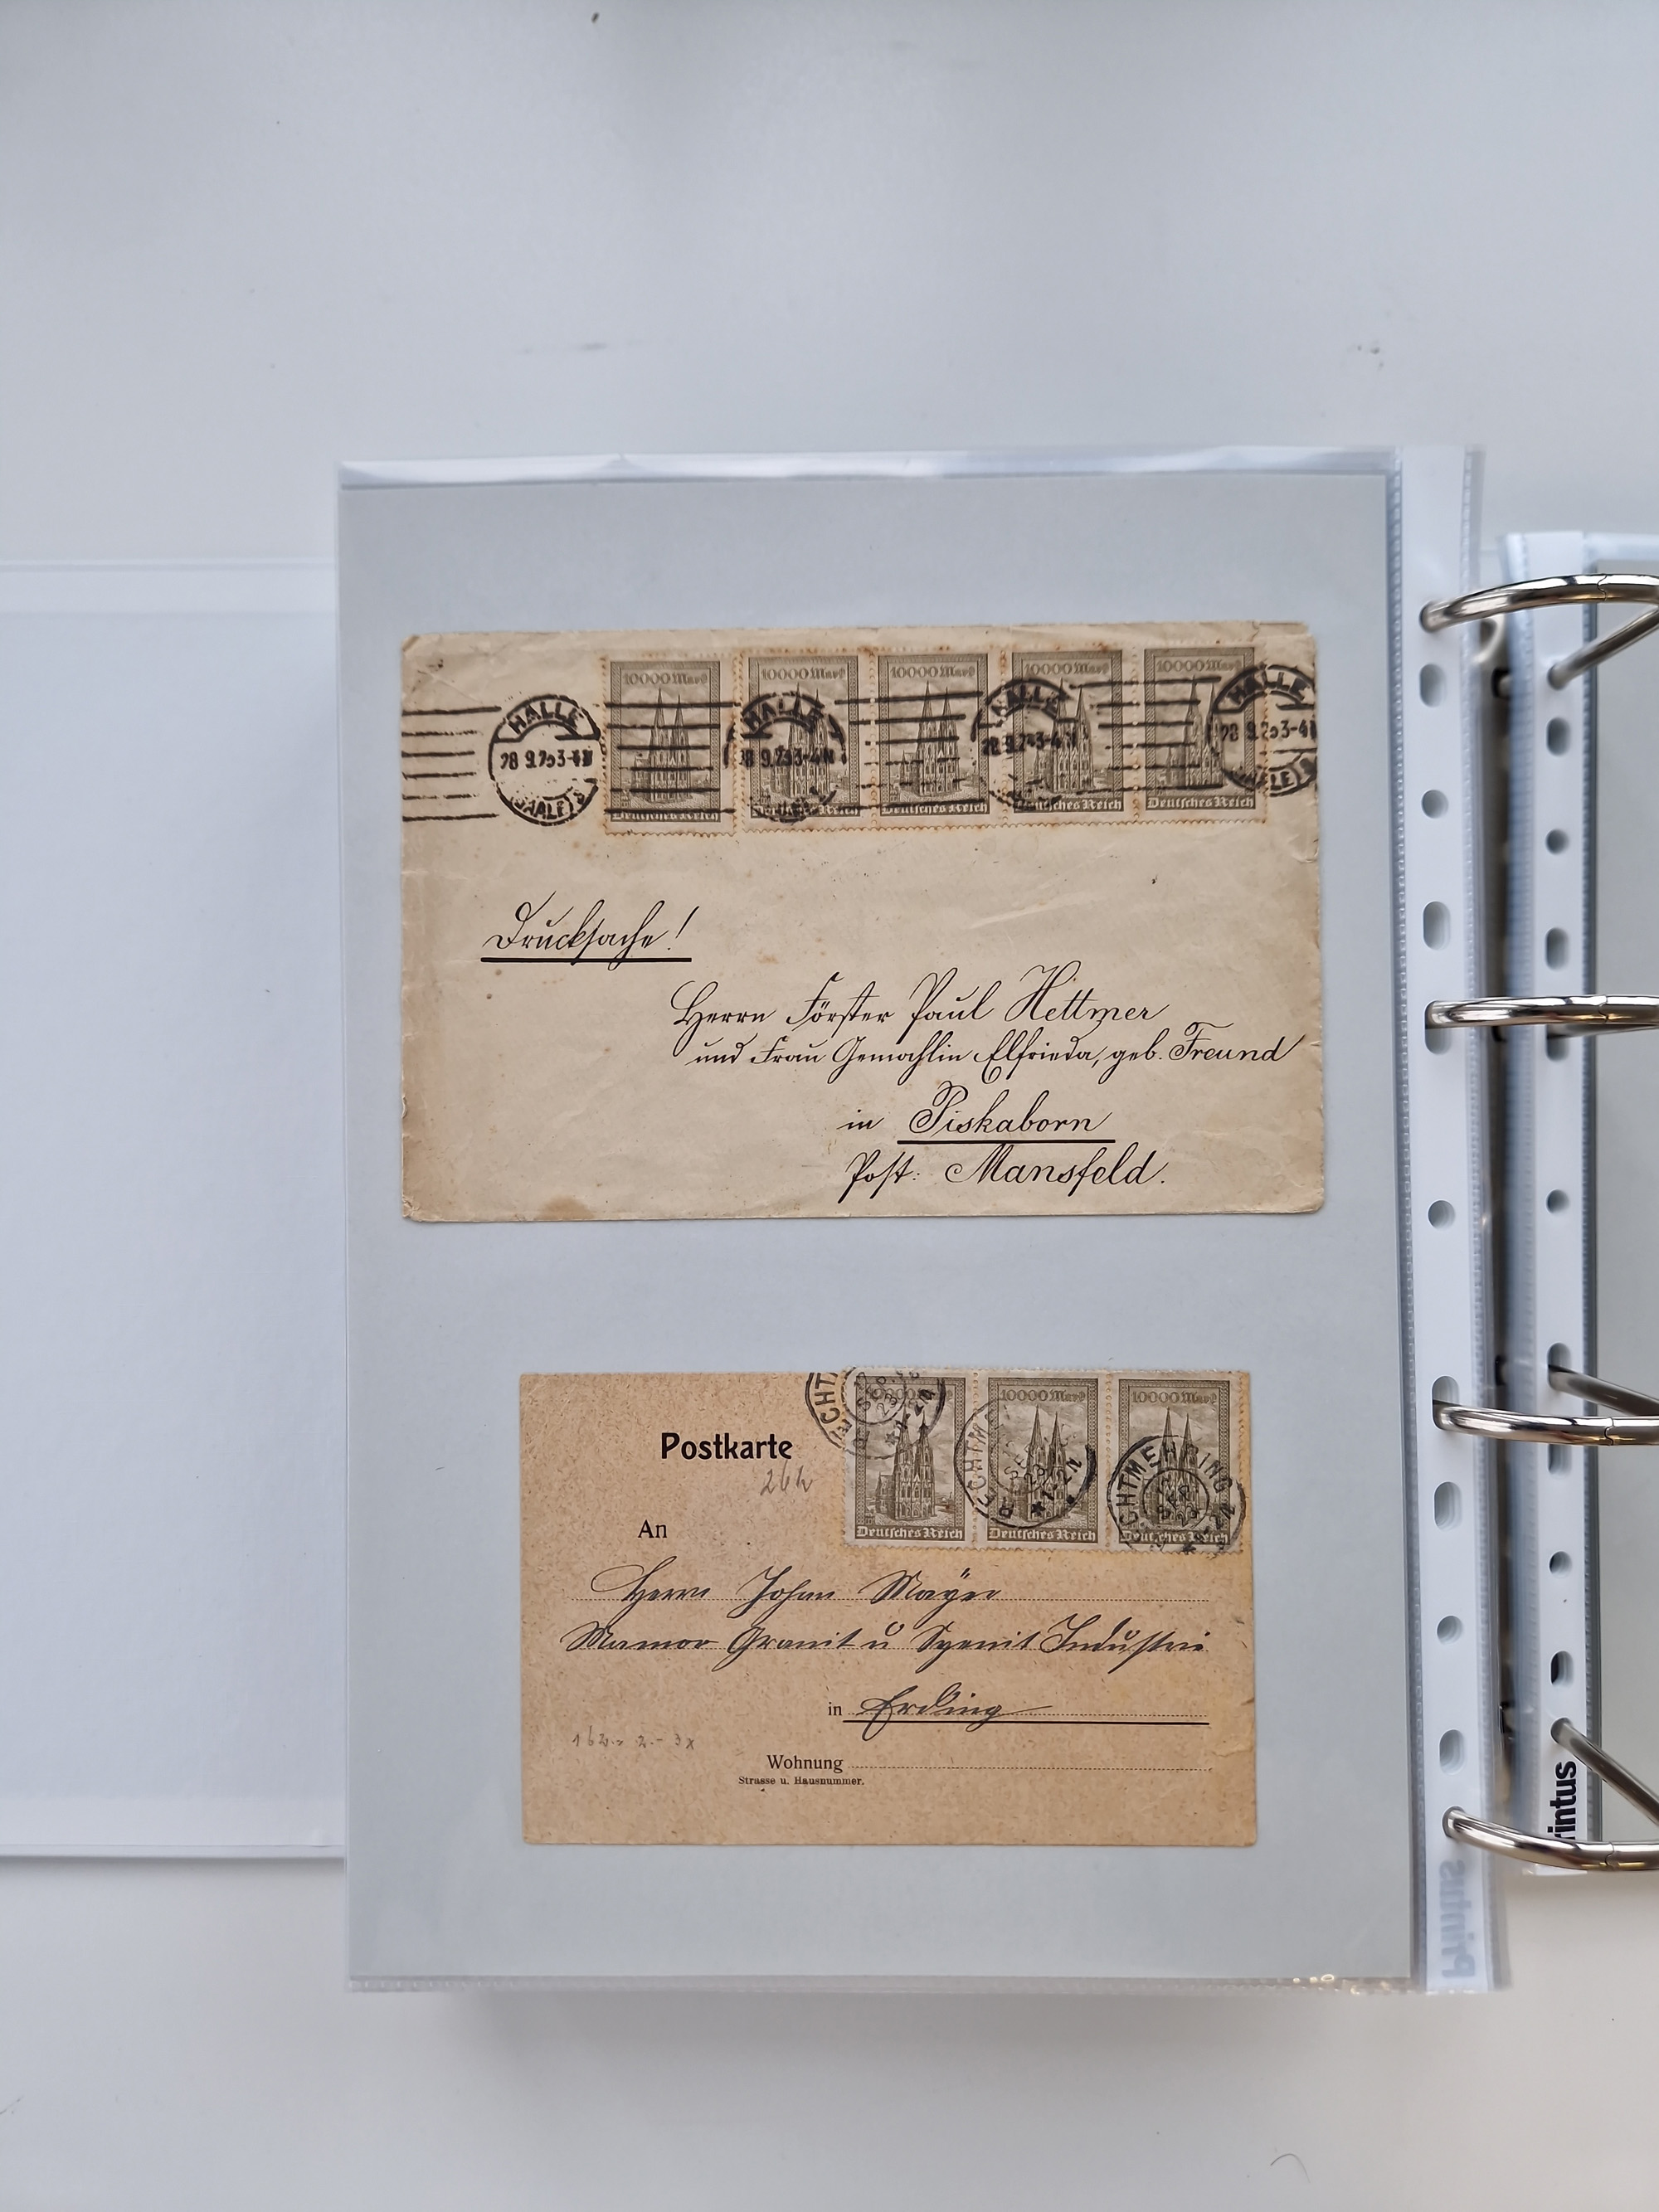 10000 Mark 10000 Mark 10000 Mark 10000 Mark 10000 Mark
HALLE HALLE HALLE HALLE
28 9.23 3-4N 28 9.23 3-4N 28 9.23 3-4N 28 9.23 3-4N
(SAALE) S
Deutsches Reich Deutsches Reich Deutsches Reich Deutsches Reich Deutsches Reich
Drucksache!
Herrn Förster Paul Hettmer
und Frau Gemahlin Elfrieda, geb. Freund
in Piskaborn
Post: Mansfeld.
10000 Mark 10000 Mark 10000 Mark
Postkarte
Deutsches Reich Deutsches Reich Deutsches Reich
An
Herrn Johan Mayer
Mamor Granit u Syenit Industrie
in Erding
Wohnung
Strasse u. Hausnummer.
rintus
Printus